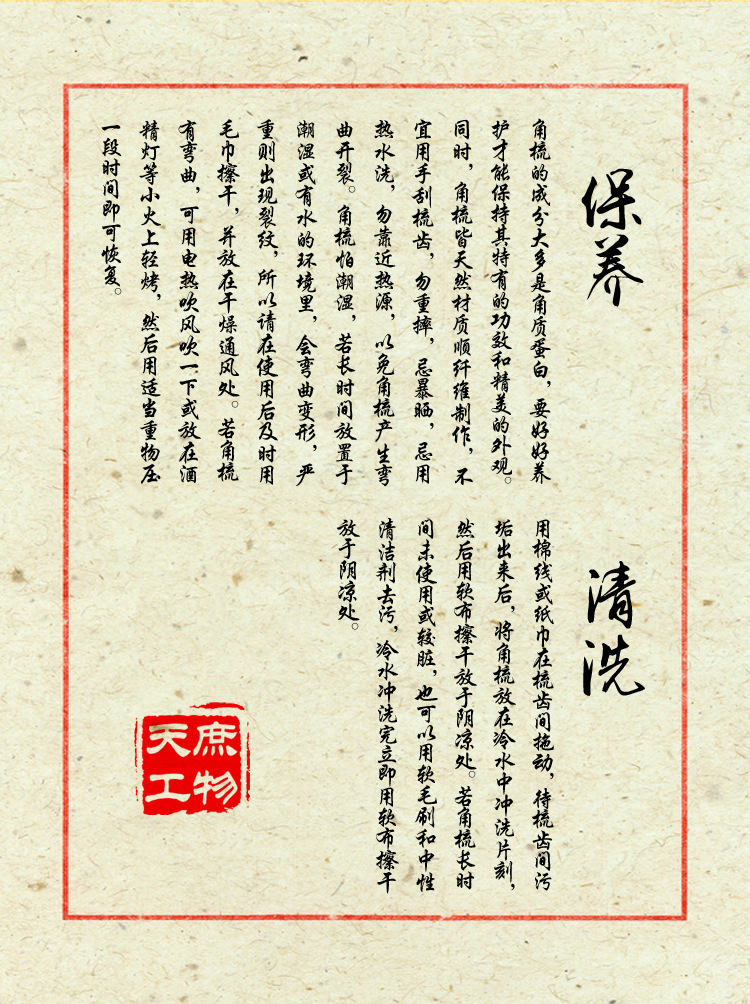 保养
角梳的成分大多是角质蛋白，要好好养
护才能保持其特有的功效和精美的外观。
同时，角梳皆天然材质顺纤维制作，不
宜用手刮梳齿，勿重摔，忌暴晒，忌用
热水洗，勿靠近热源，以免角梳产生弯
曲开裂。角梳怕潮湿，若长时间放置于
潮湿或有水的环境里，会弯曲变形，严
重则出现裂纹，所以请在使用后及时用
毛巾擦干，并放在干燥通风处。若角梳
有弯曲，可用电热吹风吹一下或放在酒
精灯等小火上轻烤，然后用适当重物压
一段时间即可恢复。
清洗
用棉线或纸巾在梳齿间拖动，待梳齿间污
垢出来后，将角梳放在冷水中冲洗片刻，
然后用软布擦干放于阴凉处。若角梳长时
间未使用或较脏，也可以用软毛刷和中性
清洁剂去污，冷水冲洗完立即用软布擦干
放于阴凉处。
庶物
天工